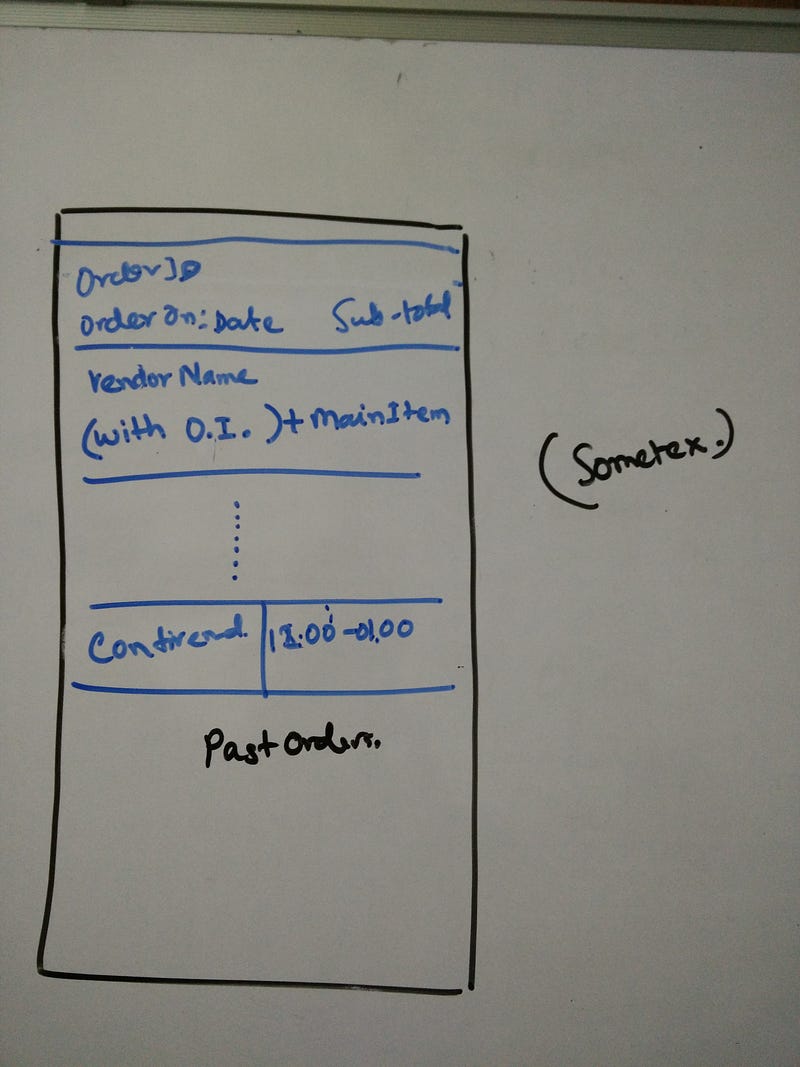 Order ID
Order On: Date Sub-total
Vendor Name
(with O.I.) + Main Item
(Sometex.)
12:00 - 01.00
Past Orders.